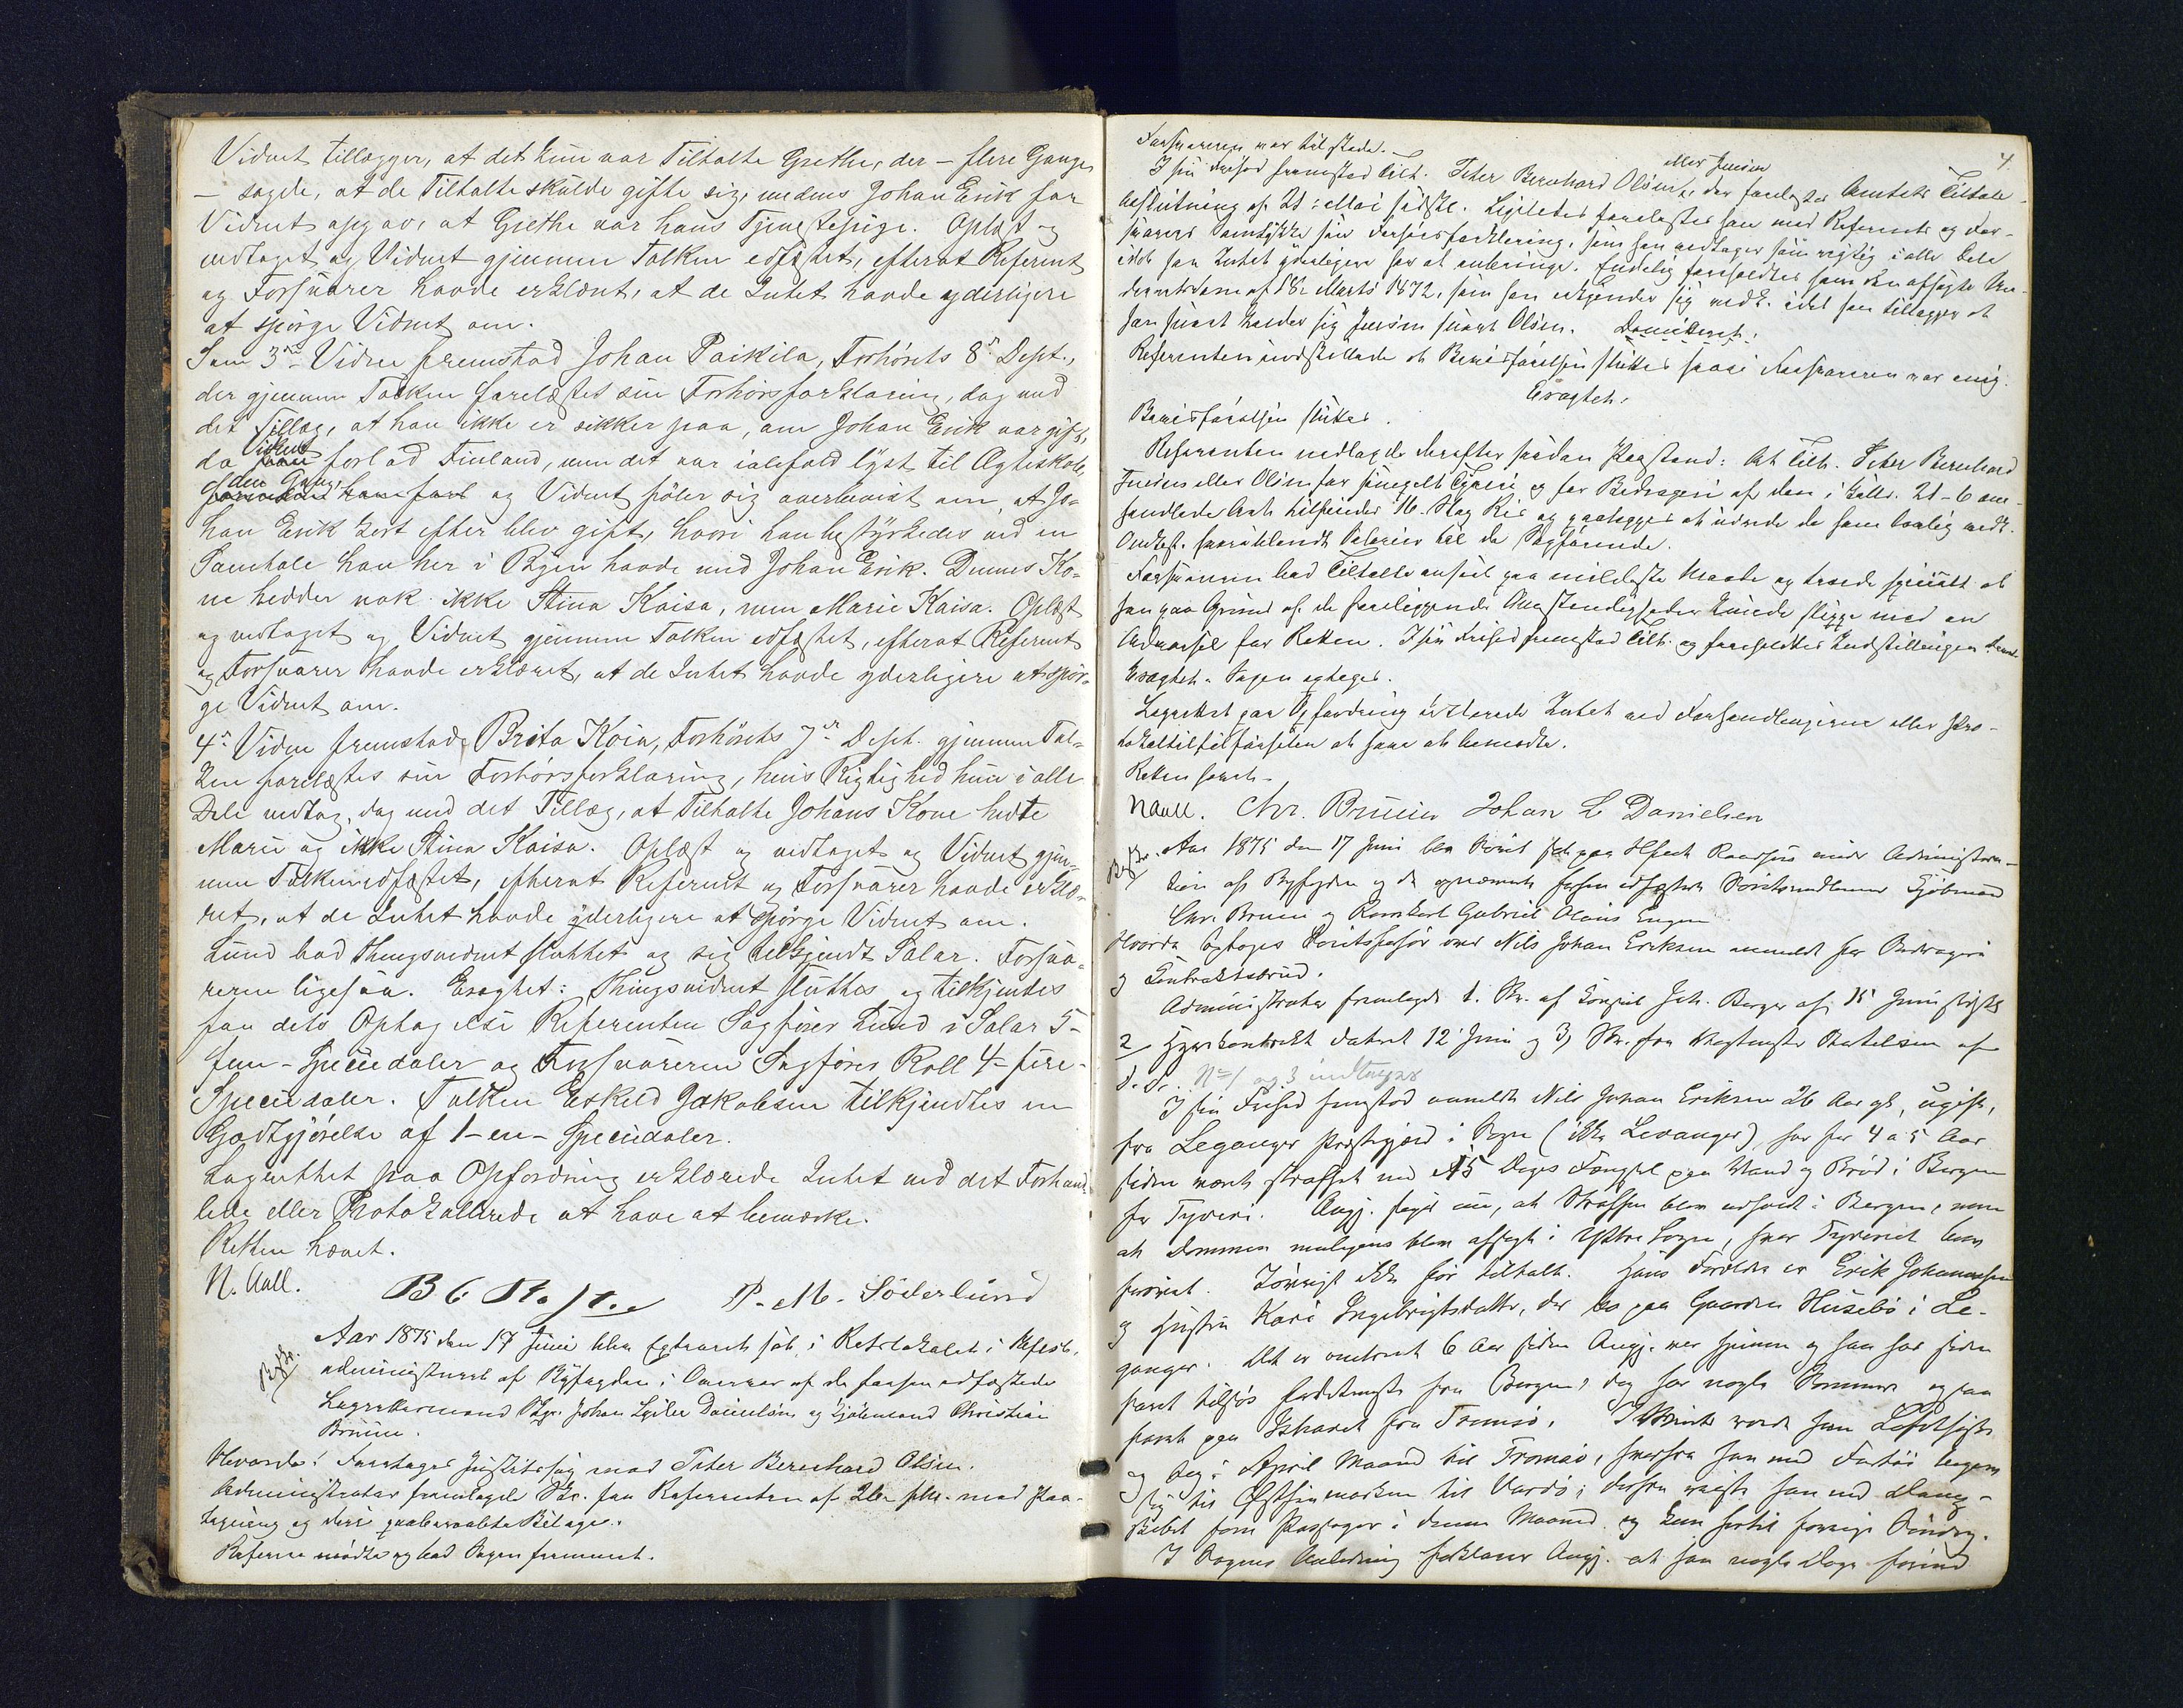 Vidnet tillægger, at det kun var Tiltalte Grethe, der - flere Gange
- sagde, at de Tiltalte skulde gifte sig, medens Johan Erik for
Vidnet opgav, at Grethe var hans Tjenestepige. Oplæst og
vedtaget og Vidnet gjennem Tolken edfæstet, efterat Referent
og Forsvarer havde erklæret, at de Intet havde yderligere
at spørge Vidnet om.
Som 3die Vidne fremstod Johan Paikila, Forhørets 8de Dept.,
der gjennem Tolken forelæstes sin Forhørsforklaring, dog med
det Tillæg, at han ikke er sikker paa, om Johan Erik var gift,
da Vidnet forlod Finland, men det var ialfald lyst til Ægteskab,
den Gang, og Vidnet føler sig overbevist om, at Jo-
han Erik kort efter blev gift, hvori han bestyrkedes ved en
Samtale han her i Byen havde med Johan Erik. Dennes Ko-
ne hedder nok ikke Stina Kaisa, men Marie Kaisa. Oplæst
og vedtaget og Vidnet gjennem Tolken edfæstet, efterat Referent
og Forsvarer havde erklæret, at de Intet havde yderligere at spør-
ge Vidnet om.
4de Vidne fremstod Brita Koia, Forhørets 7de Dept. gjennem Tol-
ken forelæstes sin Forhørsforklaring, hvis Rigtighed hun i alle
Dele vedtog, dog med det Tillæg, at Tiltalte Johans Kone hedte
Marie og ikke Stina Kaisa. Oplæst og vedtaget og Vidnet gjen-
nem Tolken edfæstet, efterat Referent og Forsvarer havde erklæ-
ret, at de Intet havde yderligere at spørge Vidnet om.
Lund bad Thingsvidnet sluttet og sig tilkjendt Salær. Forsva-
reren ligesaa. Eragtet: Thingsvidnet sluttes og tilkjendes
for dets Optagelse Referenten Sagfører Lund i Salær 5-
fem - Speciedaler og Forsvareren Sagfører Roll 4- fire-
Speciedaler. Tolken Eskild Jakobsen tilkjendtes en
Godtgjørelse af 1-en- Speciedaler.
Lagrettet paa Opfordring erklærede Intet ved det Forhand-
lede eller Protokollerede at have at bemærke.
Retten hævet.
N. Aall. P. M. Söderlund
Aar 1875 den 17 Juni blev Extraret sat i Retslokalet i Hfest,
administreret af Byfogden i Overvær af de forhen edfæstede
Lagrettesmænd Skpr. Johan Danielsen og Kjøbmand Christian
Bruun.
Hvorda: Foretages Justitssag mod Peter Bernhard Olsen.
Administrator fremlagde Skr. fra Referenten af med Paa-
tegning og deri paaberaabte Bilager.
Referenten mødte og bad Sagen fremmet.
4.
Forsvareren var tilstede.
eller Jensen
I sin Frihed fremstod Tilt. Peter Bernhard Olsen, der forelæstes Amtets Tiltale-
beslutning af 21 Mai sidstl. Ligeledes forelæstes han med Referents og For-
svarers Samtykke sin Forhørsforklaring, som han vedtager som rigtig i alle Dele
idet han Intet yderligere har at anbringe. Endelig foreholdtes ham den afsagte Un-
derretsdom af 18 Marts 1872, som han erkjender sig vedk. idet han tillægger at
han snart kalder sig Jensen snart Olsen. Demitteret.
Referenten indstillede at Bevisførelsen sluttes hvori Forsvareren var enig.
Eragtet:
Bevisførelsen sluttes.
Referenten nedlagde derefter saadan Paastand: At Tilt. Peter Bernhard
Jensen eller Olsen for simpelt Tyveri og for Bedrageri af den i Kdlr. 21-6 om-
handlede Art tilfindes 16. Slag Ris og paalægges at udrede de ham lovlig vedk.
Omkost. herunder Salærier til de Sagførende.
Forsvareren bad Tiltalte anseet paa mildeste Maade og troede specielt at
han paa Grund af de foreliggende Omstændigheder kunde slippe med en
Advarsel for Retten. I sin Frihed fremstod Tilt. og foreholdtes Indstillingen.
Eragtet: Sagen optages.
Lagrettet paa Opfordring erklærede Intet ved Forhandlingerne eller Pro-
tokoltilførselen at have at bemærke.
Retten hævet.
NAall. Chr. Bruun Johan L Danielsen
Aar 1875 den 17 Juni blev Sørets sat paa Hfest Raadhus under Administra-
tion af Byfogden og de opnævnte forhen edfæstede Søretsmedlemmer Kjøbmand
Chr. Bruun og Gabriel Olaus Eugen
Hvorda: Optoges Søretsforhør over Nils Johan Eriksen anmeldt for Bedrageri
og Contraktsbrud.
Administrator fremlagde 1. Skr. af Konsul Joh. Berger af 15 Juni sidstl
2 Hyrekontrakt dateret 12 Juni og 3) Skr. fra af
d. D. No 1 og 3 indtages
I sin Frihed fremstod anmeldte Nils Johan Eriksen 26 Aar gl., ugift,
fra Leganger Præstegjæld i Sogn (ikke Levanger), har for 4 a 5 Aar
siden været straffet med 15 Dages Fængsel paa Vand og Brød i Bergen
for Tyveri. Angj. siger nu, at Straffen blev udsonet i Bergen, men
at Dommen muligens blev afsagt i Yttre Sogn, hvor Tyveriet blev
forøvet. Iøvrigt ikke før tiltalt. Hans Forældre er Erik Johannesen
og Hustru Kari Ingebrigtsdatter, der bo paa Gaarden Husebø i Le-
ganger. Det er omtrent 6 Aar siden Angj. var hjemme og han har siden
faret tilsjøs fordetmeste fra Bergen, dog har nogle Sommere ogsaa
faret paa Ishavet fra Tromsø. I Vinter var han Lofotfisker
og drog i April Maaned til Tromsø, hvorfra han med Fartøi begav
sig til Østfinmarken til Vardø; derfra reiste han med Damp-
skibet som Passager i denne Maaned og kom hertil forrige Søndag.
I Sagens Anledning forklarer Angj. at han nogle Dage forend